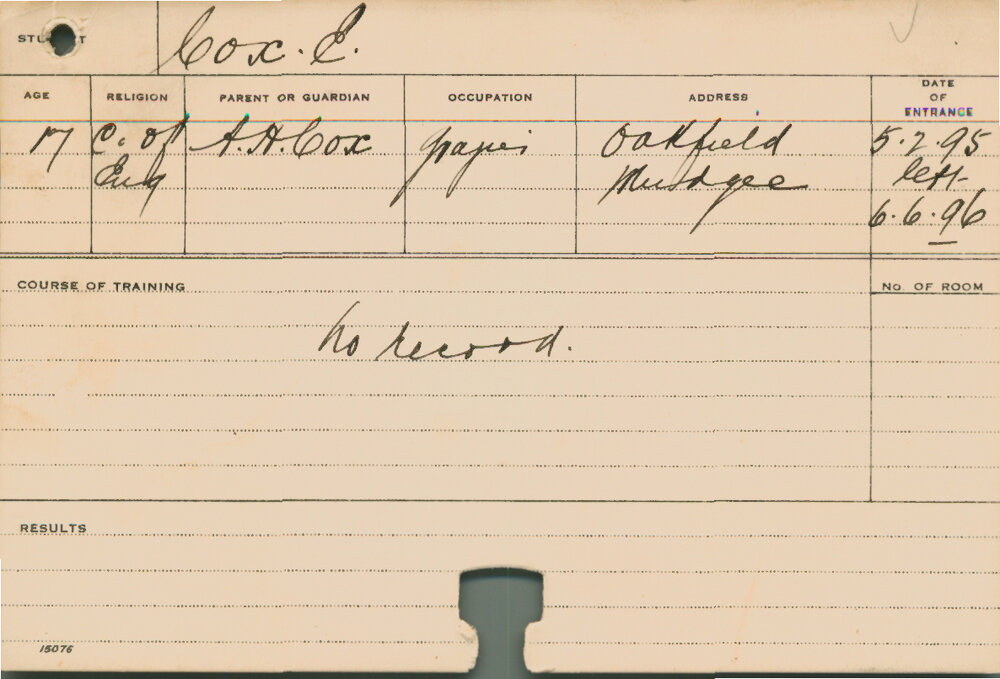 STUDENT Cox. E.
AGE RELIGION PARENT OR GUARDIAN OCCUPATION ADDRESS DATE OF ENTRANCE
17 C. of A. H. Cox Oakfield 5.2.95
Eng Mudgee left
6.6.96
COURSE OF TRAINING No. OF ROOM
No record.
RESULTS
15076